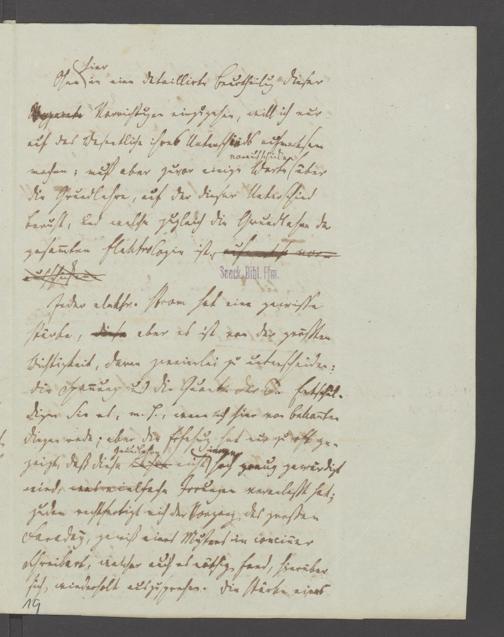 hier
Ohne in eine detaillirte Beurtheilung dieser
Vorrichtungen einzugehen, will ich nur
auf das Wesentliche ihres Unterschieds aufmerksam
machen; muß aber zuvor einige Worte über
vorausschicken
die Grundlehre, auf der dieser Unterschied
beruht, und welche zugleich die Grundlehre der
gesammten Elektrologie ist,
Senck. Bibl. Ffm.
Jeder elektr. Strom hat eine gewisse
Stärke, aber es ist von der größten
Wichtigkeit, darin zweierlei zu unterscheiden:
die Spannung und die Quantität. Entschul-
digen Sie es, m. H., wenn ich hier von bekannten
Dingen rede; aber die Erfahrung hat nur zu oft ge-
zeigt, daß diese nicht genug gewürdigt
wird, Irrungen veranlaßt hat;
zudem rechtfertigt mich der Vorgang des großen
Faraday, gewiß eines Musters im
Schreibart, welcher auch es nöthig fand, hierüber
sich wiederholt auszusprechen. Die Stärke eines
19